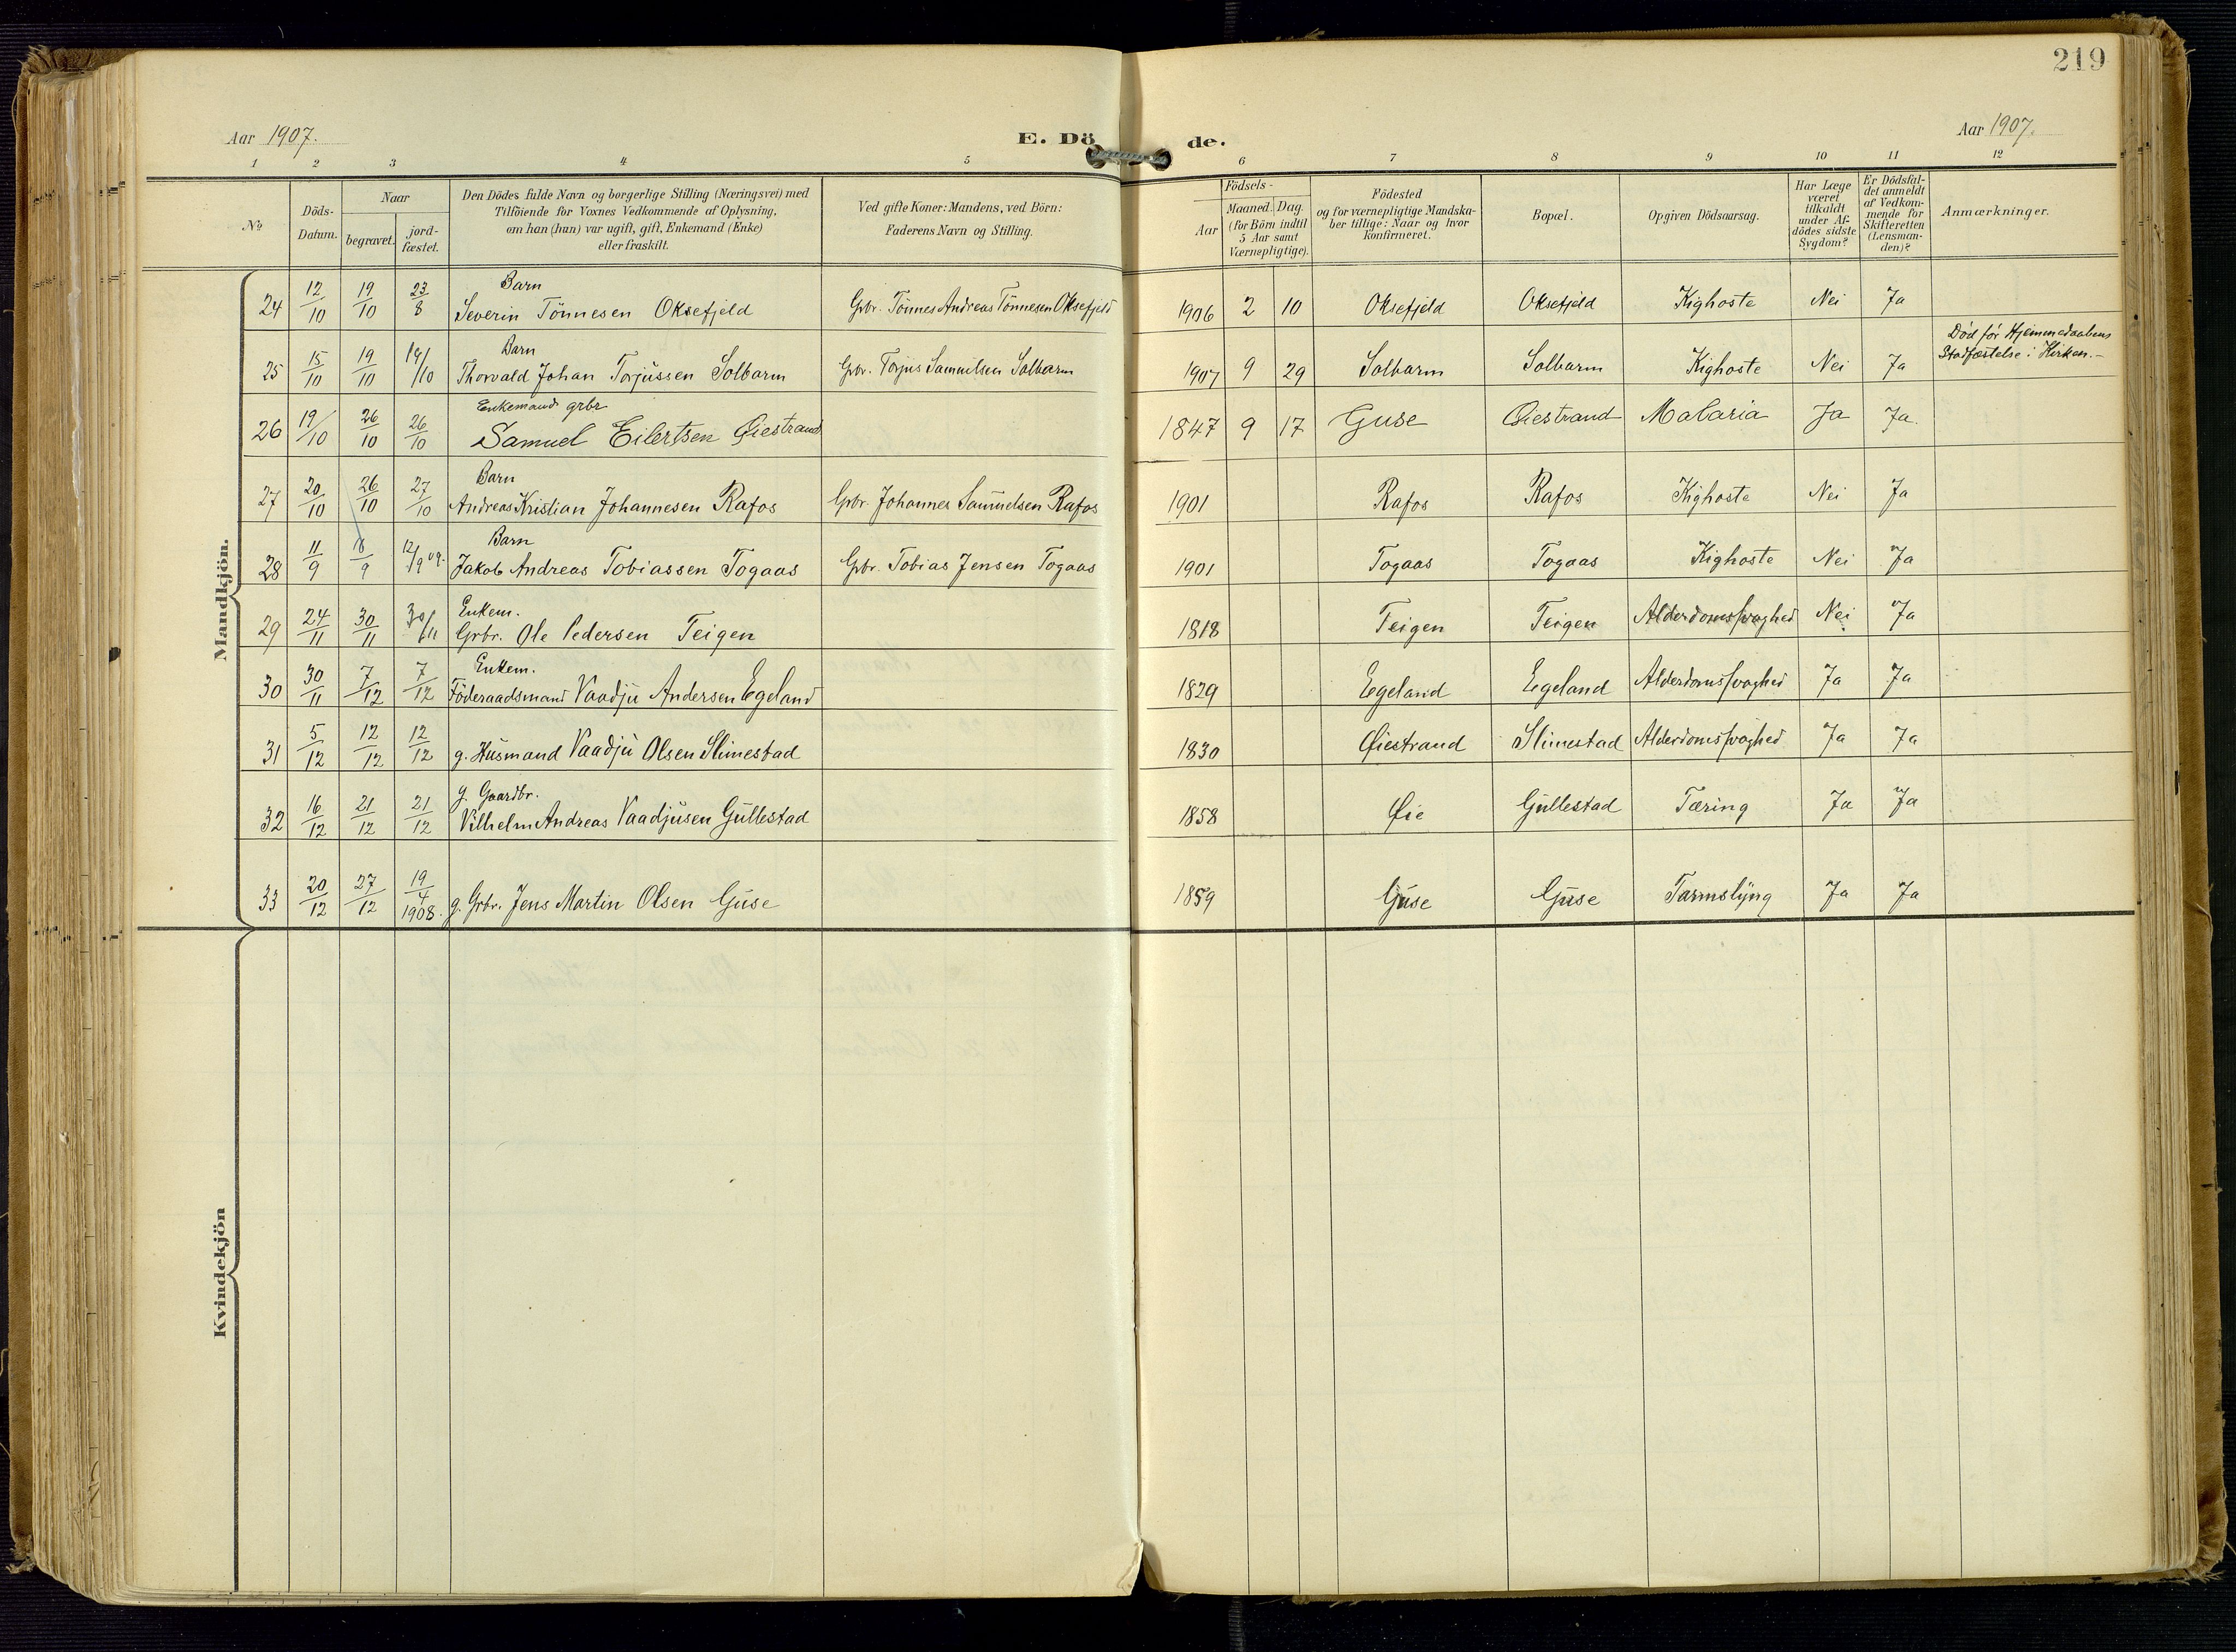 219
Aar 1907.
E. Dö de.
Aar 1907.
1 2 3 4 5 6 7 8 9 10 11 12
No
Döds-
Datum.
Naar
begravet.
jord-
fæstet.
Den Dödes fulde Navn og borgerlige Stilling (Næringsvei) med
Tilföiende for Voxnes Vedkommende af Oplysning,
om han (hun) var ugift, gift, Enkemand (Enke)
eller fraskilt.
Ved gifte Koner: Mandens, ved Börn:
Faderens Navn og Stilling.
Födsels-
Aar
Maaned. Dag.
(for Börn indtil
5 Aar samt
Værnepligtige).
Födested
og for værnepligtige Mandska-
ber tillige: Naar og hvor
konfirmeret.
Bopæl.
Opgiven Dödsaarsag.
Har Læge
været
tilkaldt
under Af-
dödes sidste
Sygdom?
Er Dödsfal-
det anmeldt
af Vedkom-
mende for
Skifteretten
(Lensman-
den)?
Anmærkninger.
Mandkjön.
Barn
24 12/10 19/10 23/8 Severin Tönnesen Oksefjeld Gbr. Tönnes Andreas Tönnesen Oksefjeld 1906 2 10 Oksefjeld Oksefjeld Kighoste Nei Ja
Barn
Död för Hjemmedaabens
Stadfæstelse i Kirken.-
25 15/10 19/10 19/10 Thorvald Johan Torjussen Solbarm Gbr. Torjus Samuelsen Solbarm 1907 9 29 Solbarm Solbarm Kighoste Nei Ja
Enkemand grbr
26 19/10 26/10 26/10 Samuel Eilertsen Øiestrand 1847 9 17 Guse Øiestrand Malaria Ja Ja.
Barn
27 20/10 26/10 27/10 Andreas Kristian Johannesen Rafos Gbr. Johannes Samuelsen Rafos 1901 Rafos Rafos Kighoste Nei Ja
Barn
28 11/9 /9 12/9 09. Jakob Andreas Tobiassen Togaas Gbr. Tobias Jensen Togaas 1901 Togaas Togaas Kighoste Nei Ja
Enkem.
29 24/11 30/11 30/11 Grbr. Ole Pedersen Teigen 1818 Teigen Teigen Alderdomssvaghed Nei Ja
Enkem.
30 30/11 7/12 7/12 Föderaadsmand Vaadju Andersen Egeland 1829 Egeland Egeland Alderdomssvaghed Ja Ja
31 5/12 12/12 12/12 g. Husmand Vaadju Olsen Slimestad 1830 Øiestrand Slimestad Alderdomssvaghed Ja Ja
g. Gaardbr.
32 16/12 21/12 21/12 Vilhelm Andreas Vaadjusen Gullestad 1858 Øie Gullestad Tæring Ja Ja
33 20/12 27/12 19/4 1908. g. Grbr. Jens Martin Olsen Guse 1859 Guse Guse Tarmslyng Ja Ja
Kvindekjön